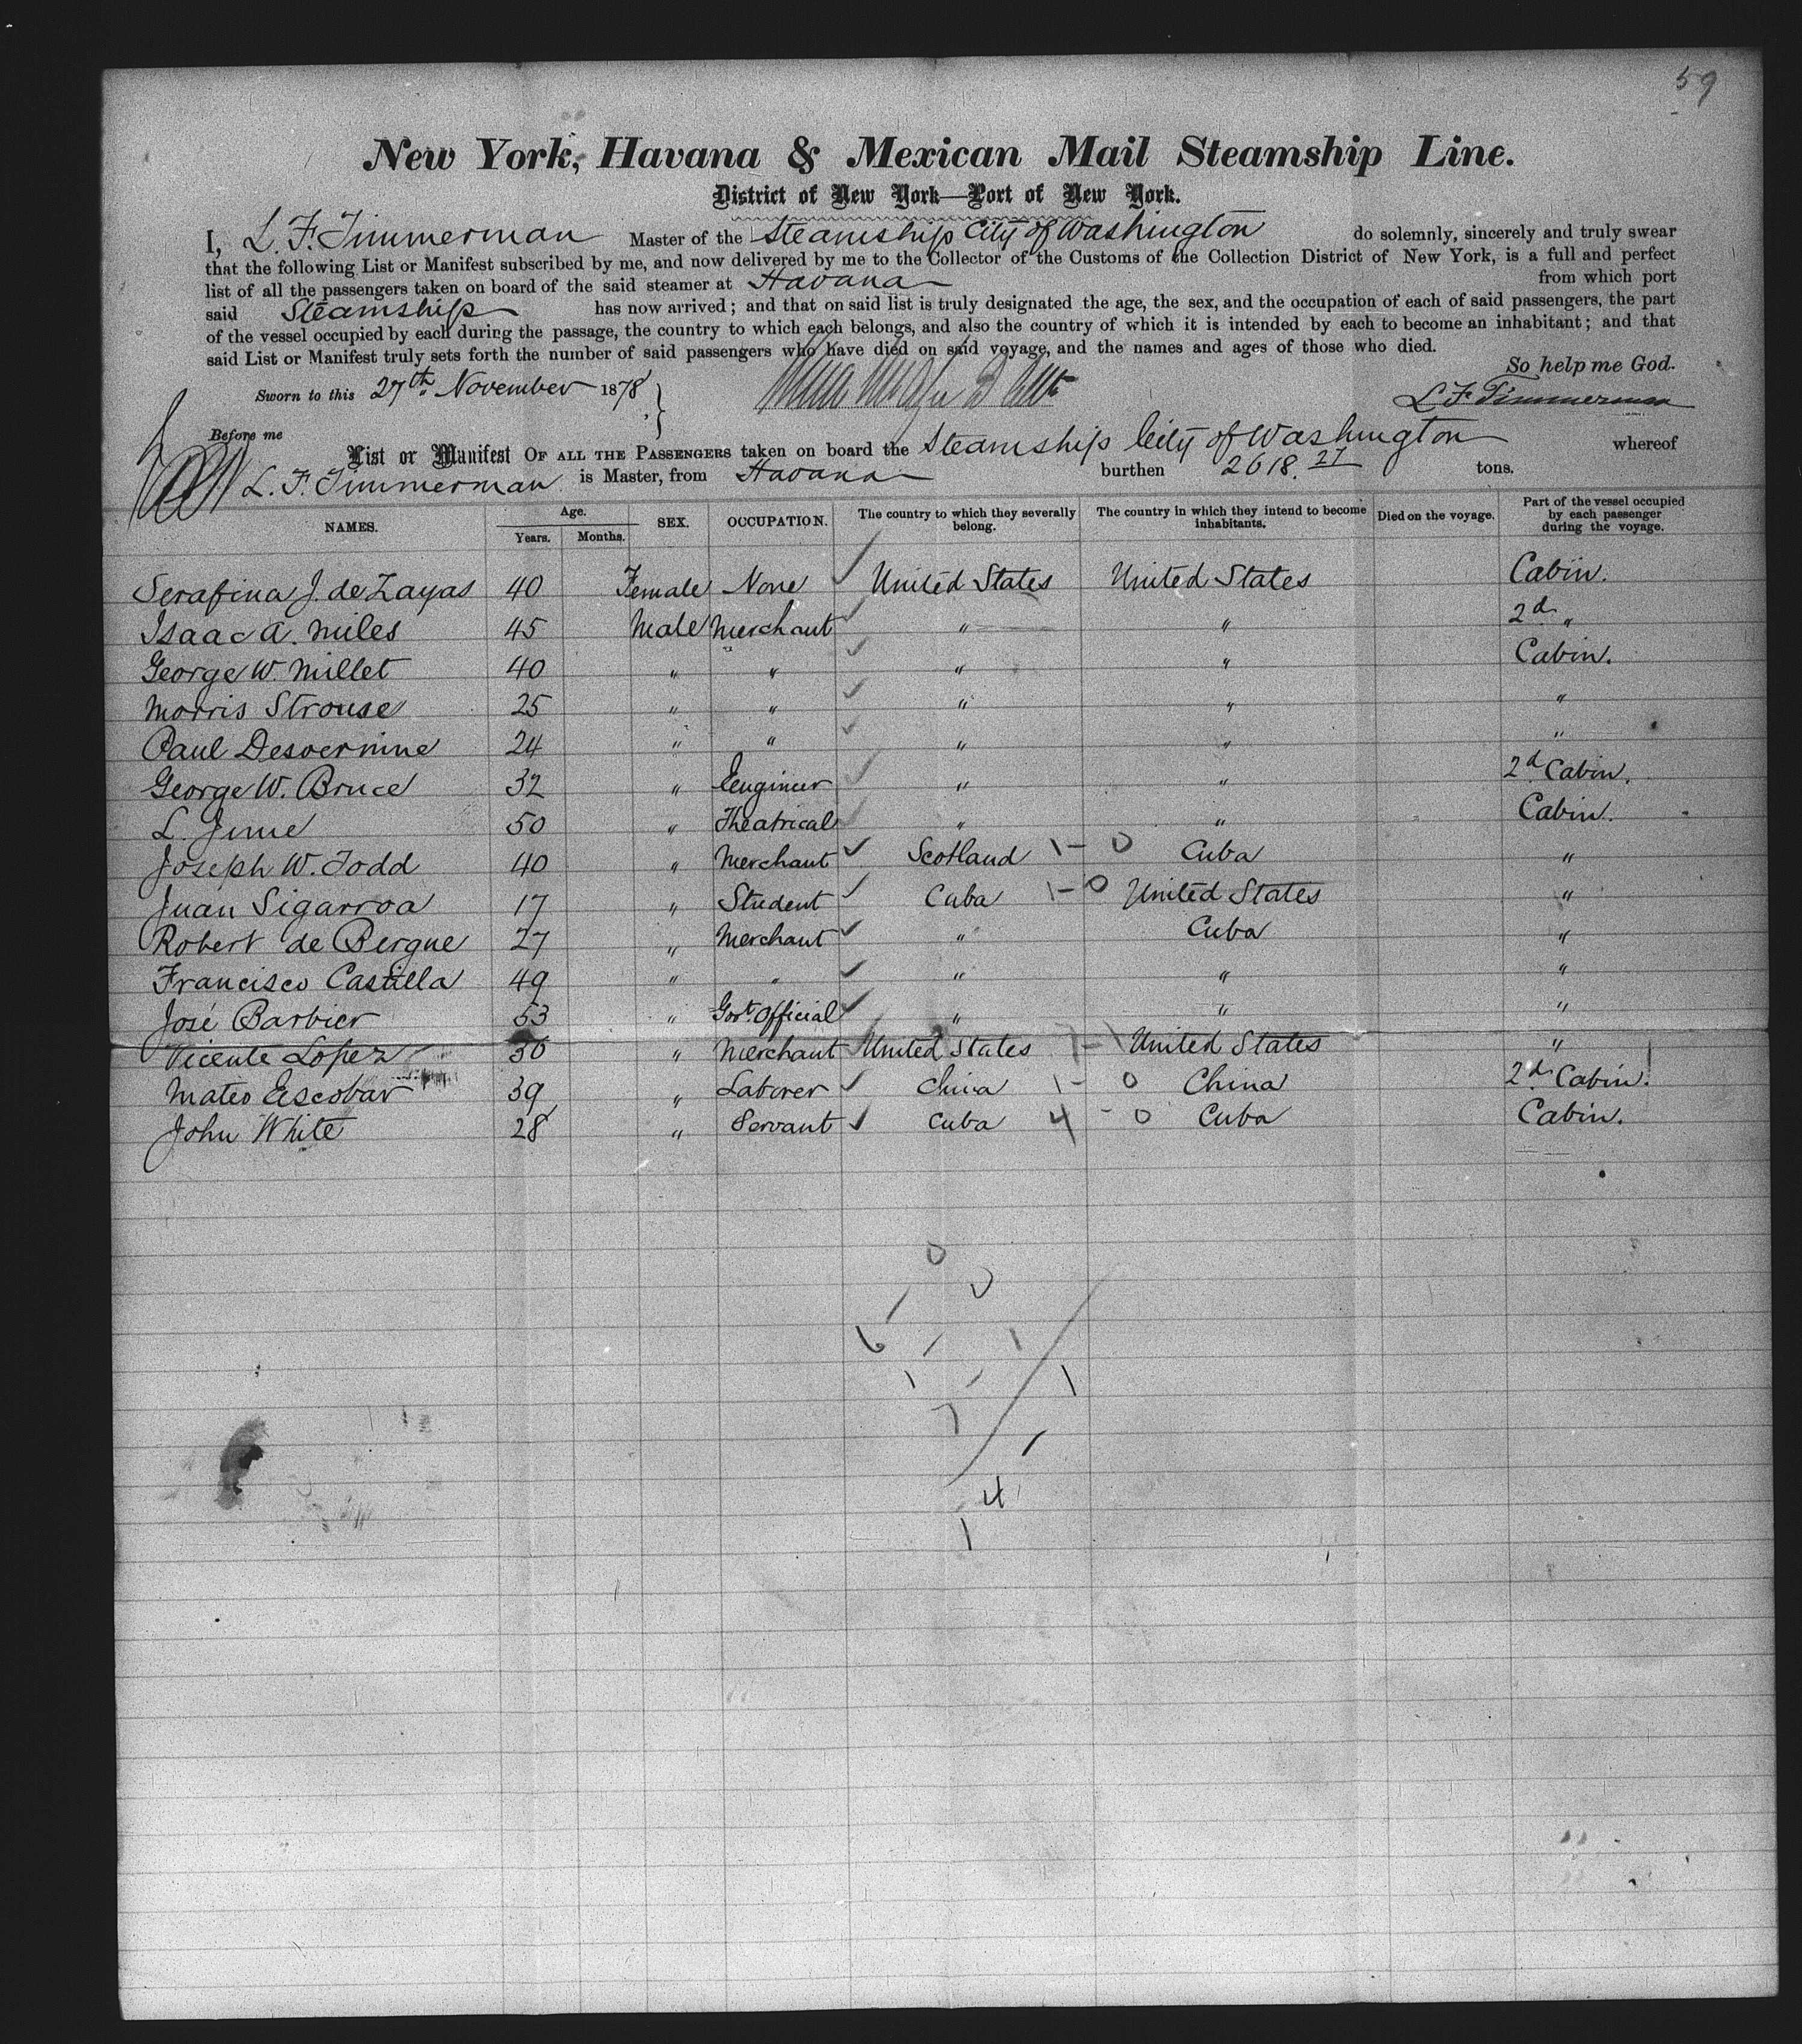 59
New York, Havana & Mexican Mail Steamship Line.
District of New York—Port of New York.
I, L. F. Timmerman Master of the Steamship City of Washington do solemnly, sincerely and truly swear
that the following List or Manifest subscribed by me, and now delivered by me to the Collector of the Customs of the Collection District of New York, is a full and perfect
list of all the passengers taken on board of the said steamer at Havana from which port
said Steamship has now arrived; and that on said list is truly designated the age, the sex, and the occupation of each of said passengers, the part
of the vessel occupied by each during the passage, the country to which each belongs, and also the country of which it is intended by each to become an inhabitant; and that
said List or Manifest truly sets forth the number of said passengers who have died on said voyage, and the names and ages of those who died.
So help me God.
Sworn to this 27th November 1878 L F Timmerman
Before me
List or Manifest OF ALL THE PASSENGERS taken on board the Steamship City of Washington whereof
L. F. Timmerman is Master, from Havana burthen 2618. 27 tons.
NAMES. Age. Years. Months. SEX. OCCUPATION. The country to which they severally belong. The country in which they intend to become inhabitants. Died on the voyage. Part of the vessel occupied by each passenger during the voyage.
Serafina J. de Zayas 40 Female None United States United States Cabin.
Isaac A. Miles 45 Male Merchant " " 2d "
George W. Millet 40 " " " " Cabin.
Morris Strouse 25 " " " " "
Paul Desvernine 24 " " " " "
George W. Bruce 32 " Eengineer " " 2d Cabin.
L. June 50 " Theatrical " " Cabin.
Joseph W. Todd 40 " Merchant Scotland 1 - 0 Cuba "
Juan Sigarroa 17 " Student Cuba 1 - 0 United States "
Robert de Bergue 27 " Merchant " Cuba "
Francisco Castilla 49 " " " " "
José Barbier 53 " Govt. Official " " "
Vicente Lopez 30 " Merchant United States 7 - 1 United States "
Mateo Escobar 39 " Laborer China 1 - 0 China 2d Cabin.
John White 28 " Servant Cuba 4 - 0 Cuba Cabin.
0
0
6 1
1 1
7
4
1